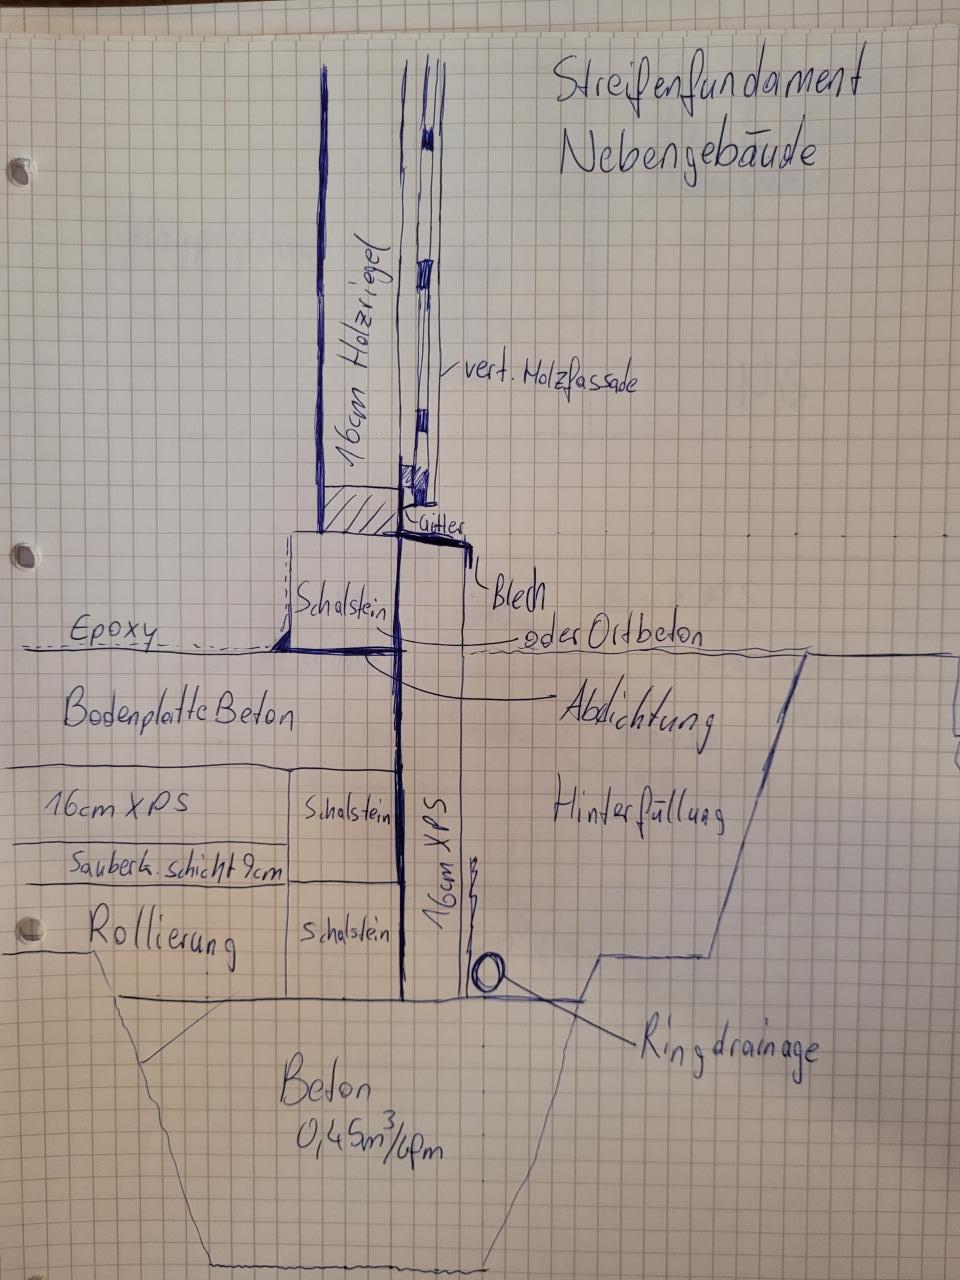 Streifenfundament
Nebengebäude
16cm Holzriegel
vert. Holzfassade
Gitter
Blech
Schalstein
oder Ortbeton
Epoxy
Abdichtung
Bodenplatte Beton
16cm XPS
Schalstein
Sauberk. schicht 9cm
Rollierung
Schalstein
16cm XPS
Hinterfüllung
Ringdrainage
Beton
0,45m³/lfm